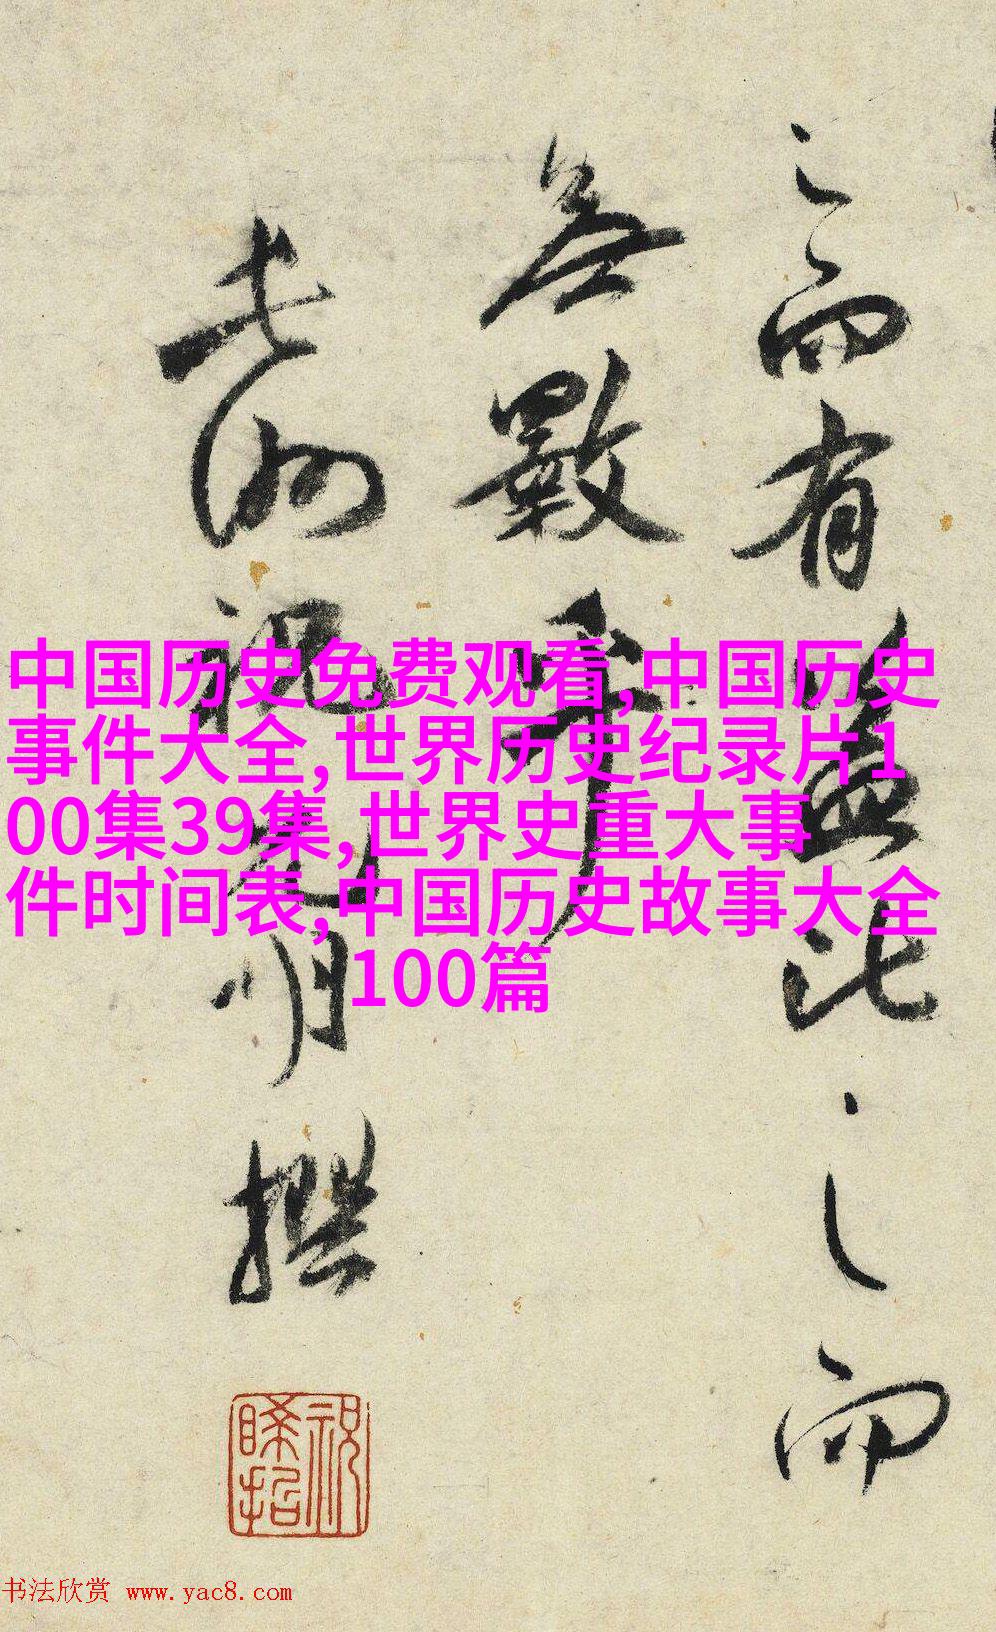 之而有益比之而
無斁乎
長洲祝允明撰
中国历史免费观看,中国历史
事件大全,世界历史纪录片1
00集39集,世界史重大事
件时间表,中国历史故事大全
100篇
书法欣赏 www.yac8.com